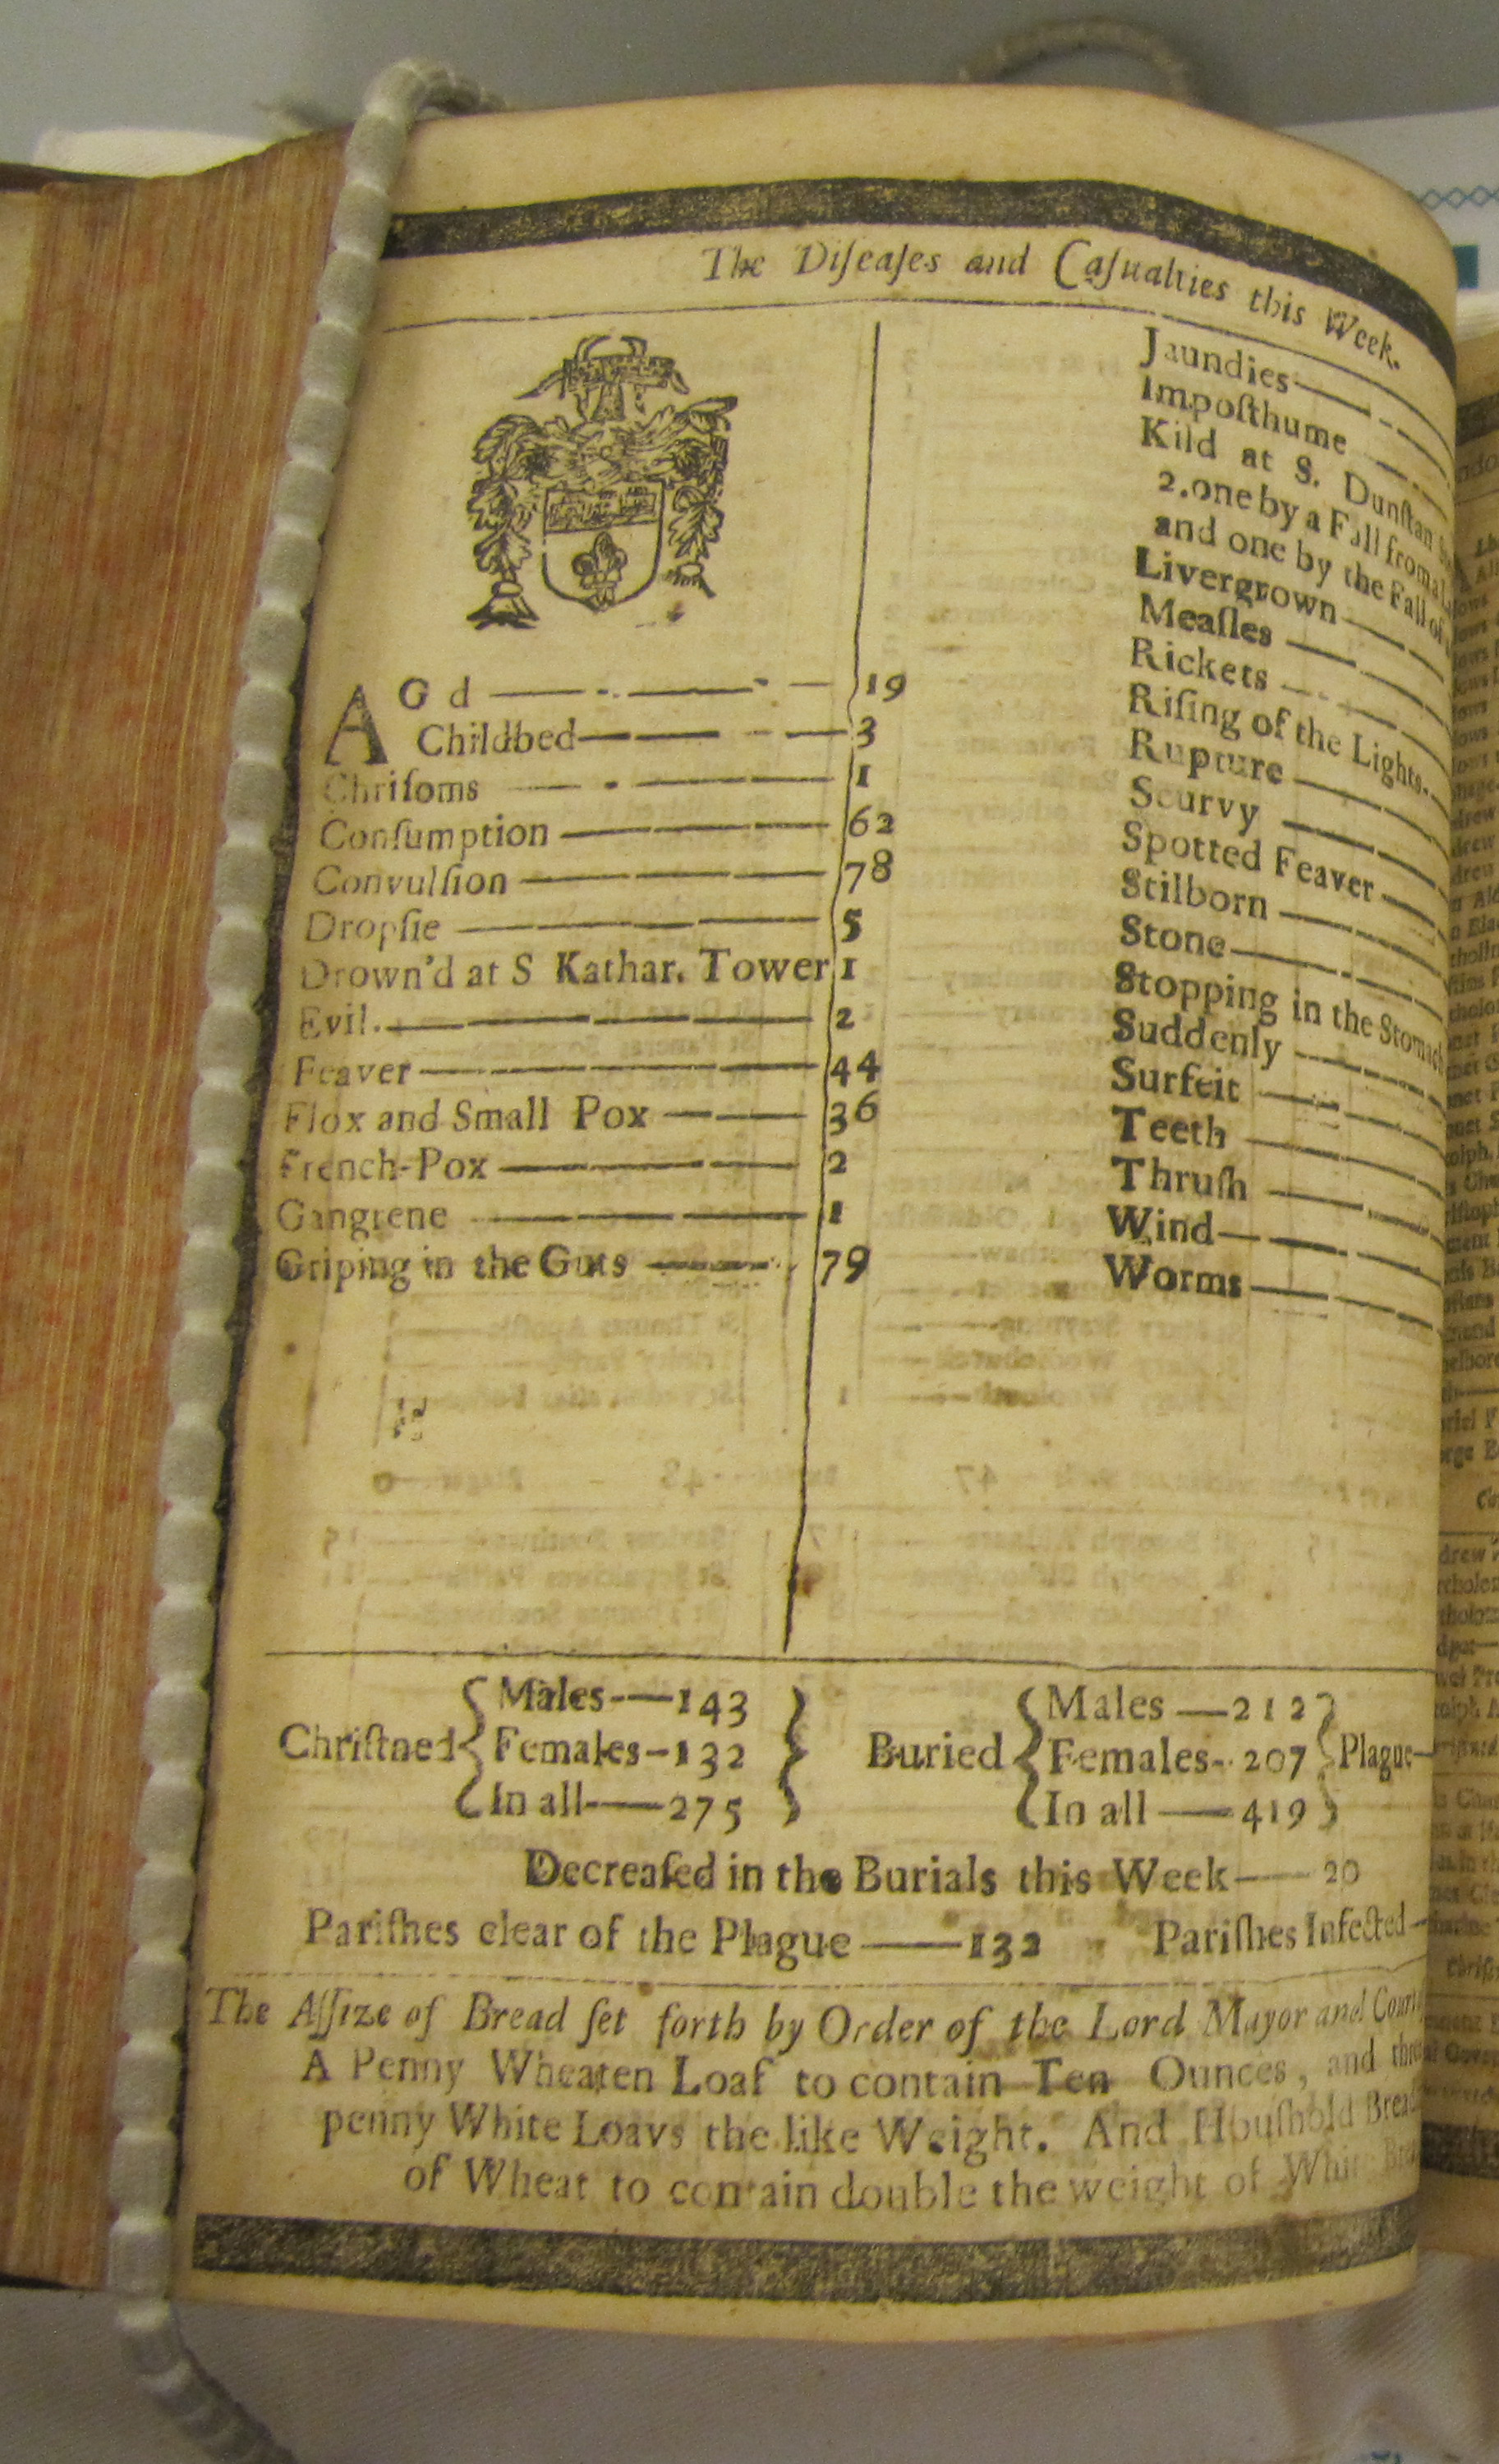 The Diſeaſes and Caſualties this Week.
AGd — 19
Childbed — 3
Chriſoms — 1
Conſumption — 62
Convulſion — 78
Dropſie — 5
Drown'd at S Kathar. Tower 1
Evil. — 2
Feaver — 44
Flox and Small Pox — 36
French-Pox — 2
Gangrene — 1
Griping in the Guts — 79
Jaundies —
Impoſthume —
Kild at S. Dunſtan
2. one by a Fall from a
and one by the Fall of
Livergrown —
Meaſles —
Rickets —
Riſing of the Lights. —
Rupture —
Scurvy —
Spotted Feaver —
Stilborn —
Stone —
Stopping in the Stomach
Suddenly —
Surfeit —
Teeth —
Thruſh —
Wind —
Worms —
Chriſtned { Males — 143
Females - 132
In all — 275 }
Buried { Males — 212
Females - 207
In all — 419 } Plague —
Decreaſed in the Burials this Week — 20
Pariſhes clear of the Plague — 132 Pariſhes Infected —
The Aſſize of Bread ſet forth by Order of the Lord Mayor and Court
A Penny Wheaten Loaf to contain Ten Ounces, and
penny White Loavs the like Weight. And Houſhold Bread
of Wheat to contain double the weight of White